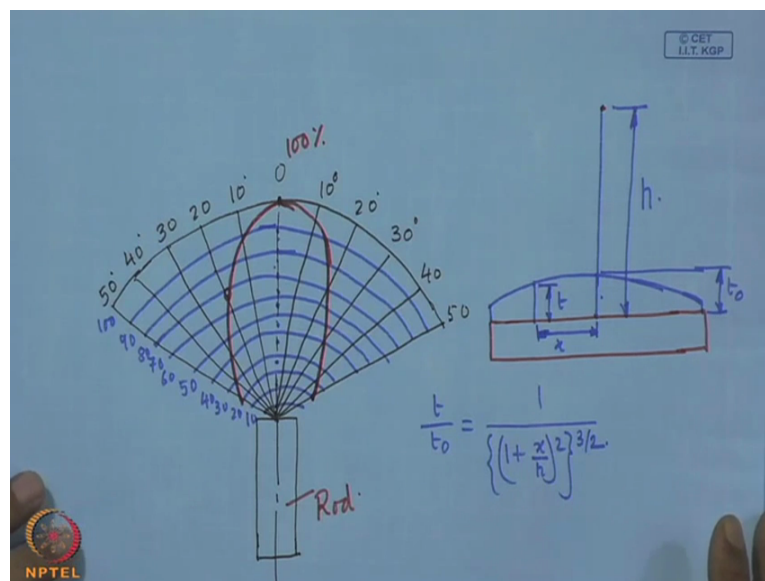 © CET
I.I.T. KGP
100%
0
10°
20
30
40°
50°
10°
20°
30°
40
50
100
90
80
70
60
50
40
30
20
10
Rod.
h.
t
t₀
x
t/t₀ = 1/{(1+x/h)²}^3/2.
NPTEL